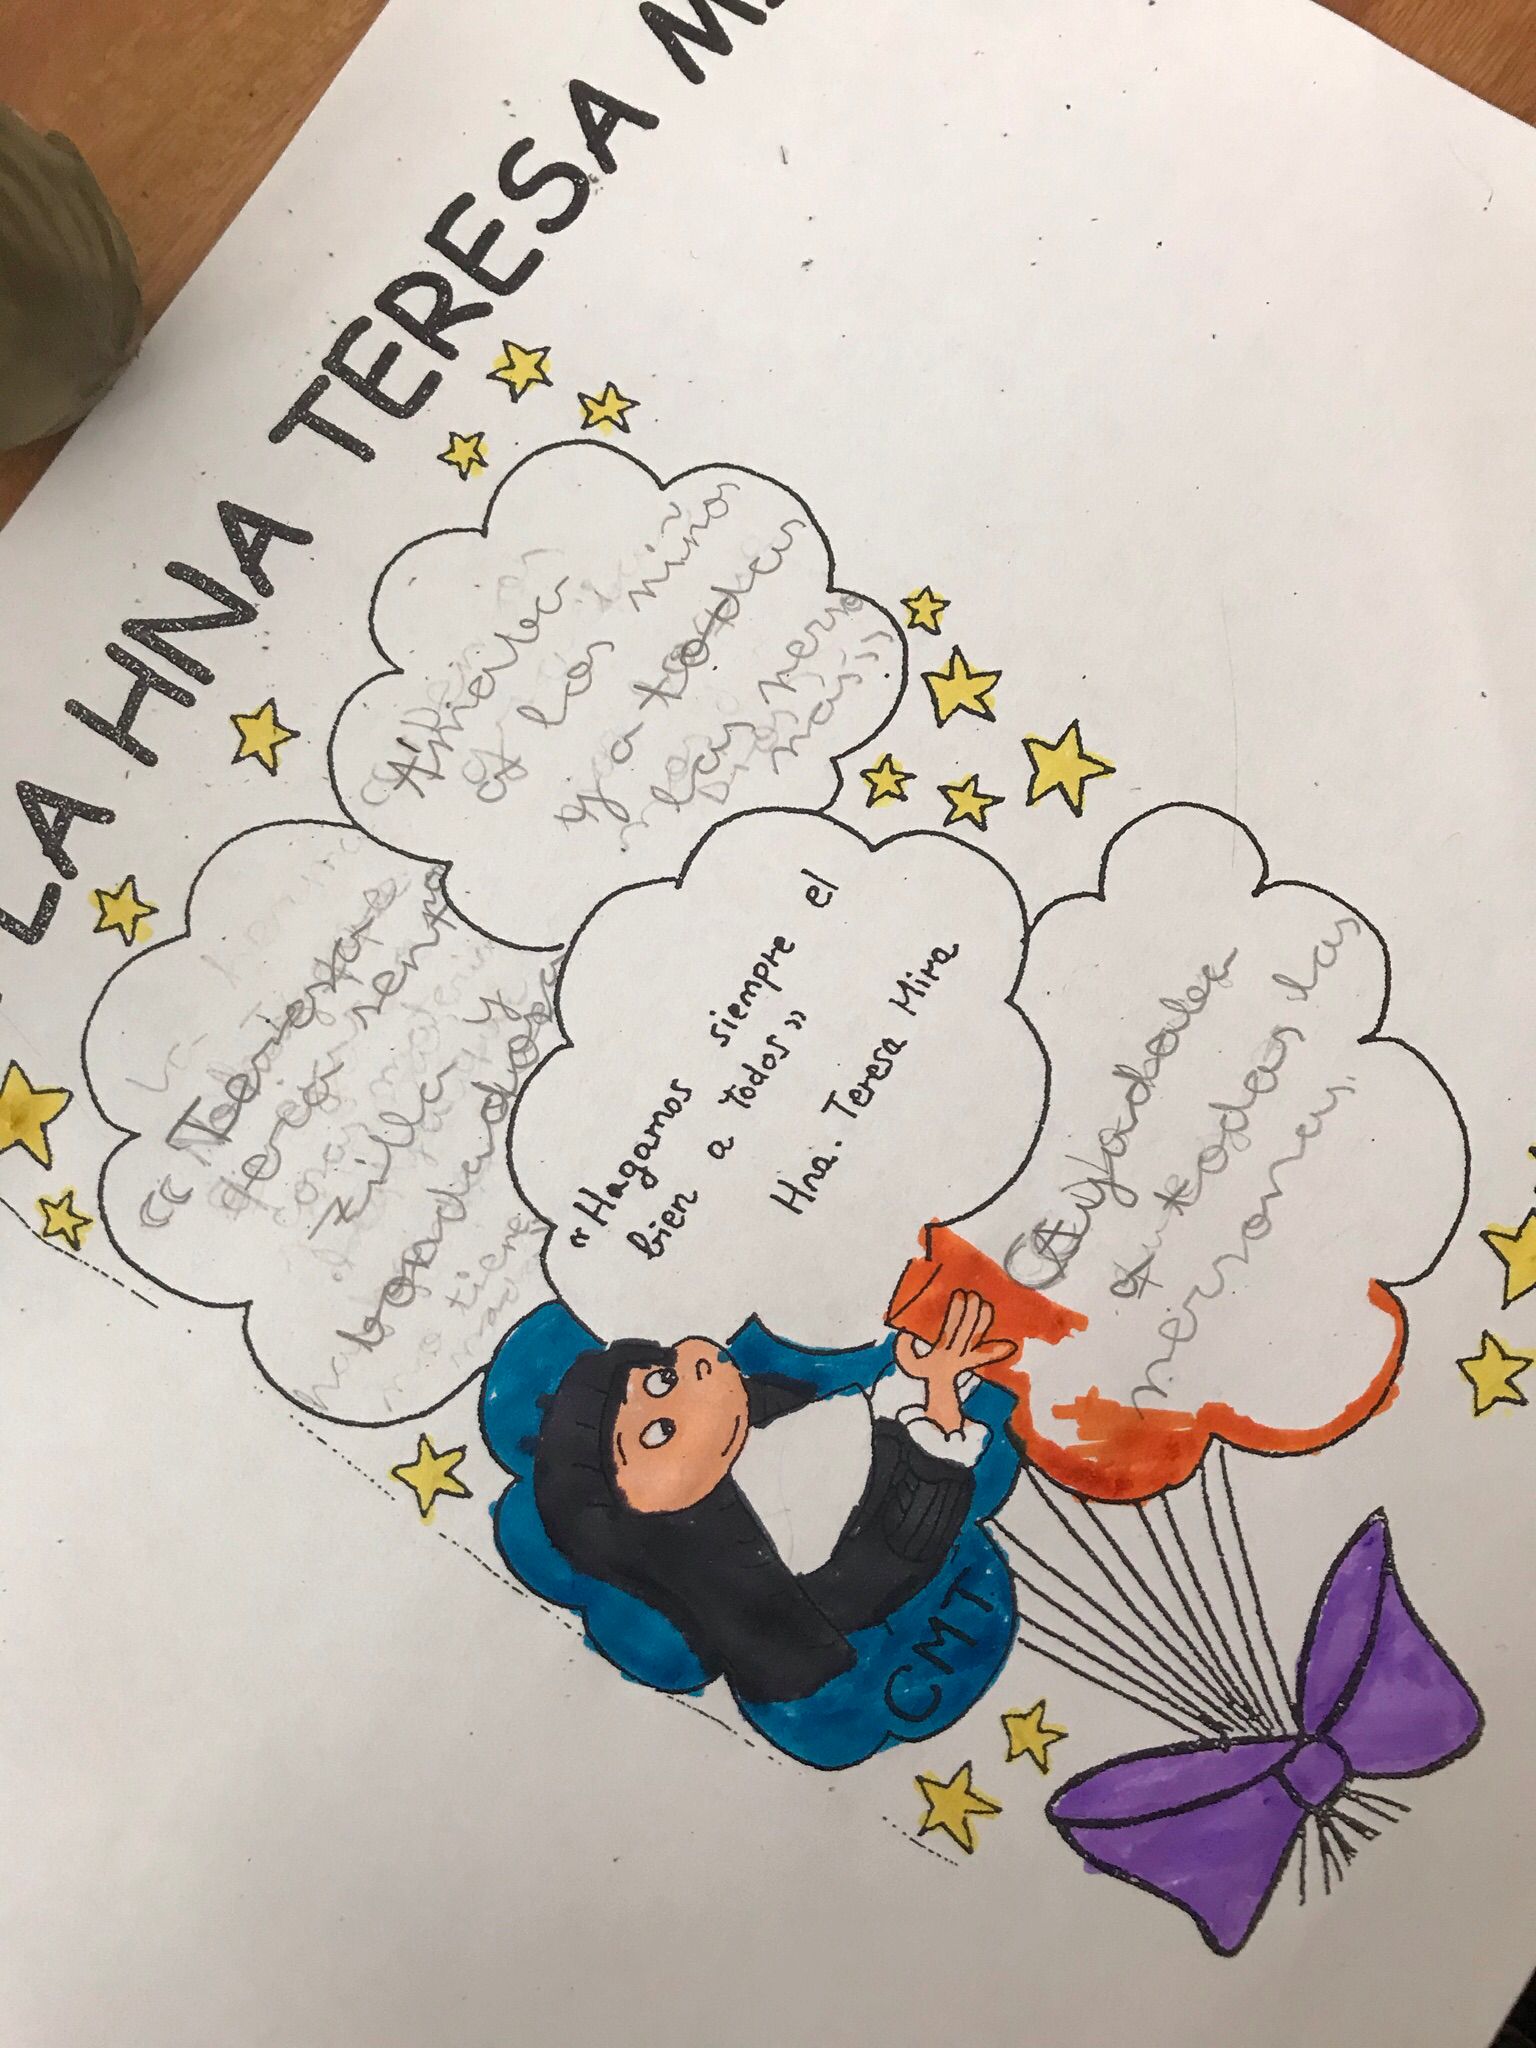 LA HNA TERESA M
Ayudaba
a los niños
y a todas
las perso
nas"
"Teresa
era senc
illa y
bondadosa
"Hagamos siempre el
bien a todos"
Hna. Teresa Mira
Ayudaba
a todas las
personas.
CMT